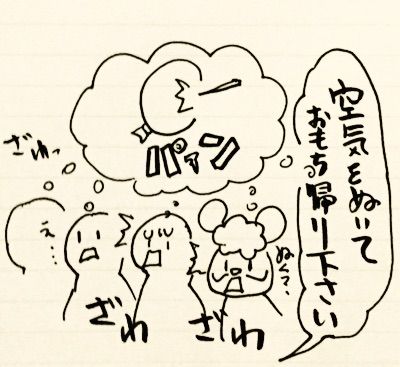 空気をぬいて
おもち帰り下さい
パァン
ざわっ
え…
ぬく?
ざわ
ざわ